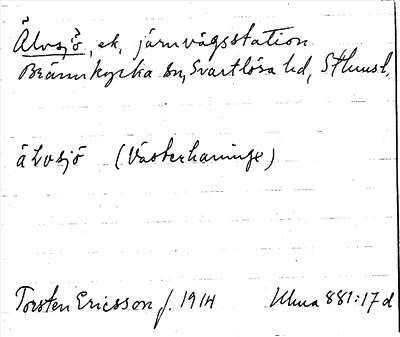 Älvsjö, ek, järnvägsstation
Brännkyrka sn, Svartlösa hd, Sthmsl.
älvsjö (Västerhaninge)
Torsten Ericsson f. 1914 Ulma 881:17 d